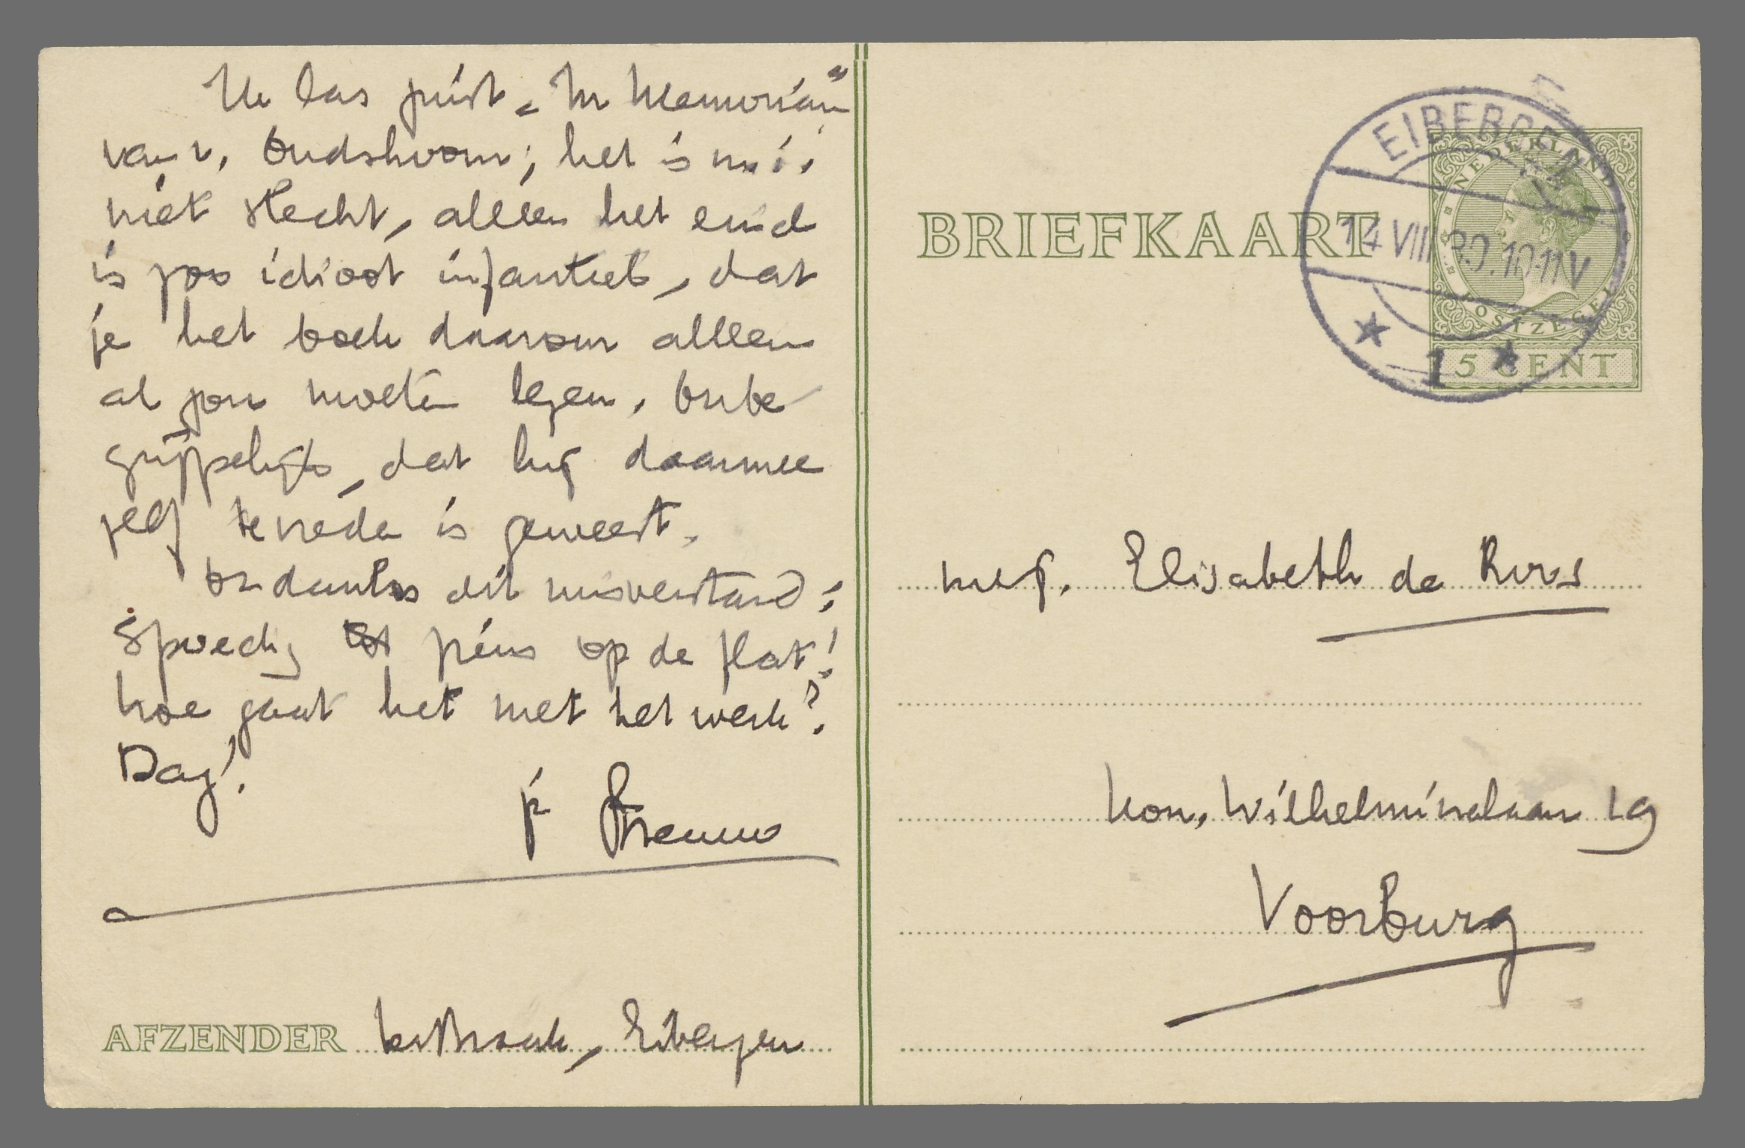 Ik las juist „In Memoriam"
van v. Oudshoorn; het is m.i.
niet slecht, alleen het eind
is zoo idioot infantiel, dat
je het boek daarom alleen
al zou moeten lezen. Onbe
grijpelijk, dat hij daarmee
zelf tevreden is geweest.
Ondanks dit misverstand:
Spoedig tot ziens op de flat!
Hoe gaat het met het werk?
Dag!
je Menno
AFZENDER ter Braak, Eibergen
BRIEFKAART
EIBERGEN
14 VIII 30.10-11V
1
NEDERLAND
POSTZEGEL
5 CENT
mej. Elisabeth de Roos
Kon. Wilhelminalaan 19
Voorburg